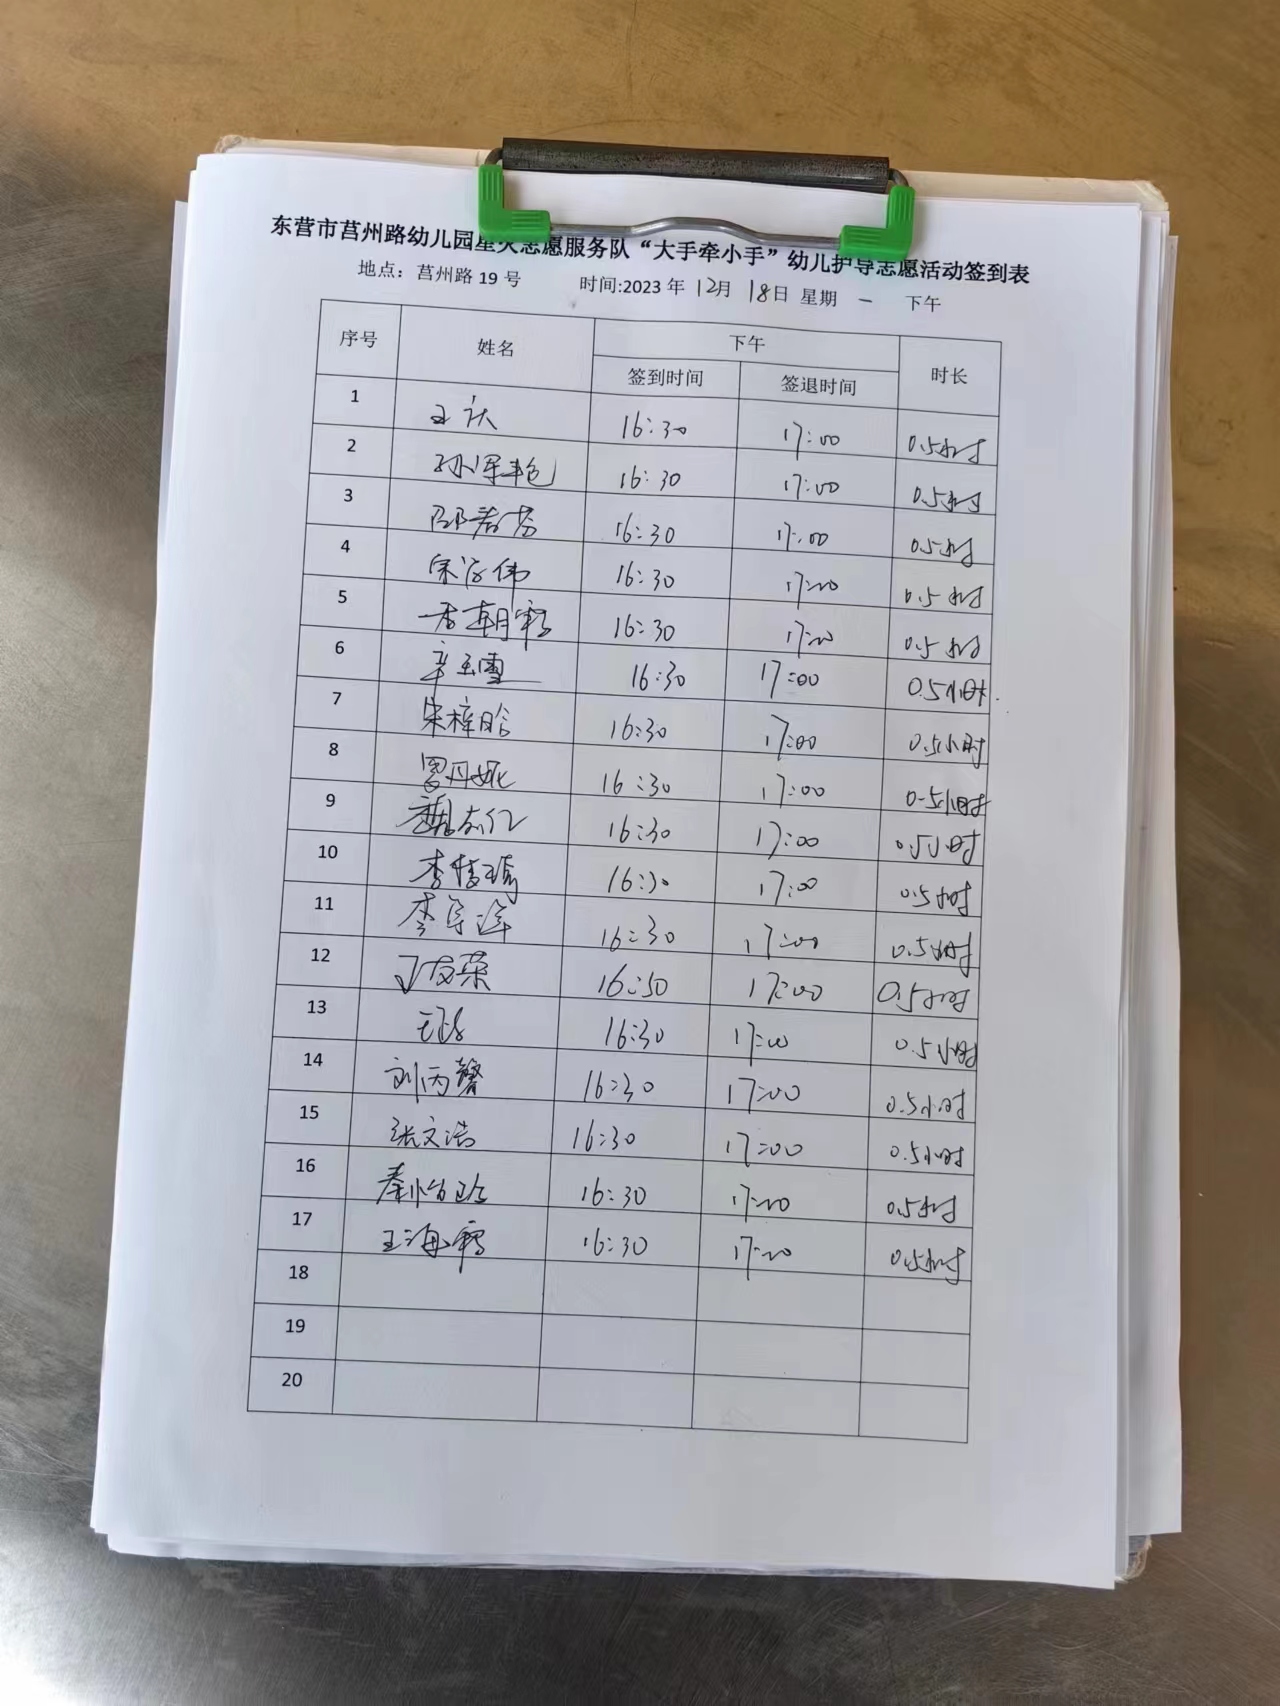 东营市莒州路幼儿园星火志愿服务队“大手牵小手”幼儿护导志愿活动签到表
地点：莒州路 19 号 时间:2023 年 12月 18日 星期 一 下午
序号 姓名 下午 时长
签到时间 签退时间
1 王 16:30 17:00 0.5小时
2 孙 16:30 17:00 0.5小时
3 邵 16:30 17:00 0.5小时
4 宋 伟 16:30 17:00 0.5小时
5 朝霞 16:30 17:00 0.5小时
6 辛玉雪 16:30 17:00 0.5小时
7 宋梓晗 16:30 17:00 0.5小时
8 16:30 17:00 0.5小时
9 魏 16:30 17:00 0.5小时
10 李 16:30 17:00 0.5小时
11 李 16:30 17:00 0.5小时
12 荣 16:30 17:00 0.5小时
13 16:30 17:00 0.5小时
14 刘丙馨 16:30 17:00 0.5小时
15 张文浩 16:30 17:00 0.5小时
16 秦怡 16:30 17:00 0.5小时
17 王海霞 16:30 17:00 0.5小时
18
19
20